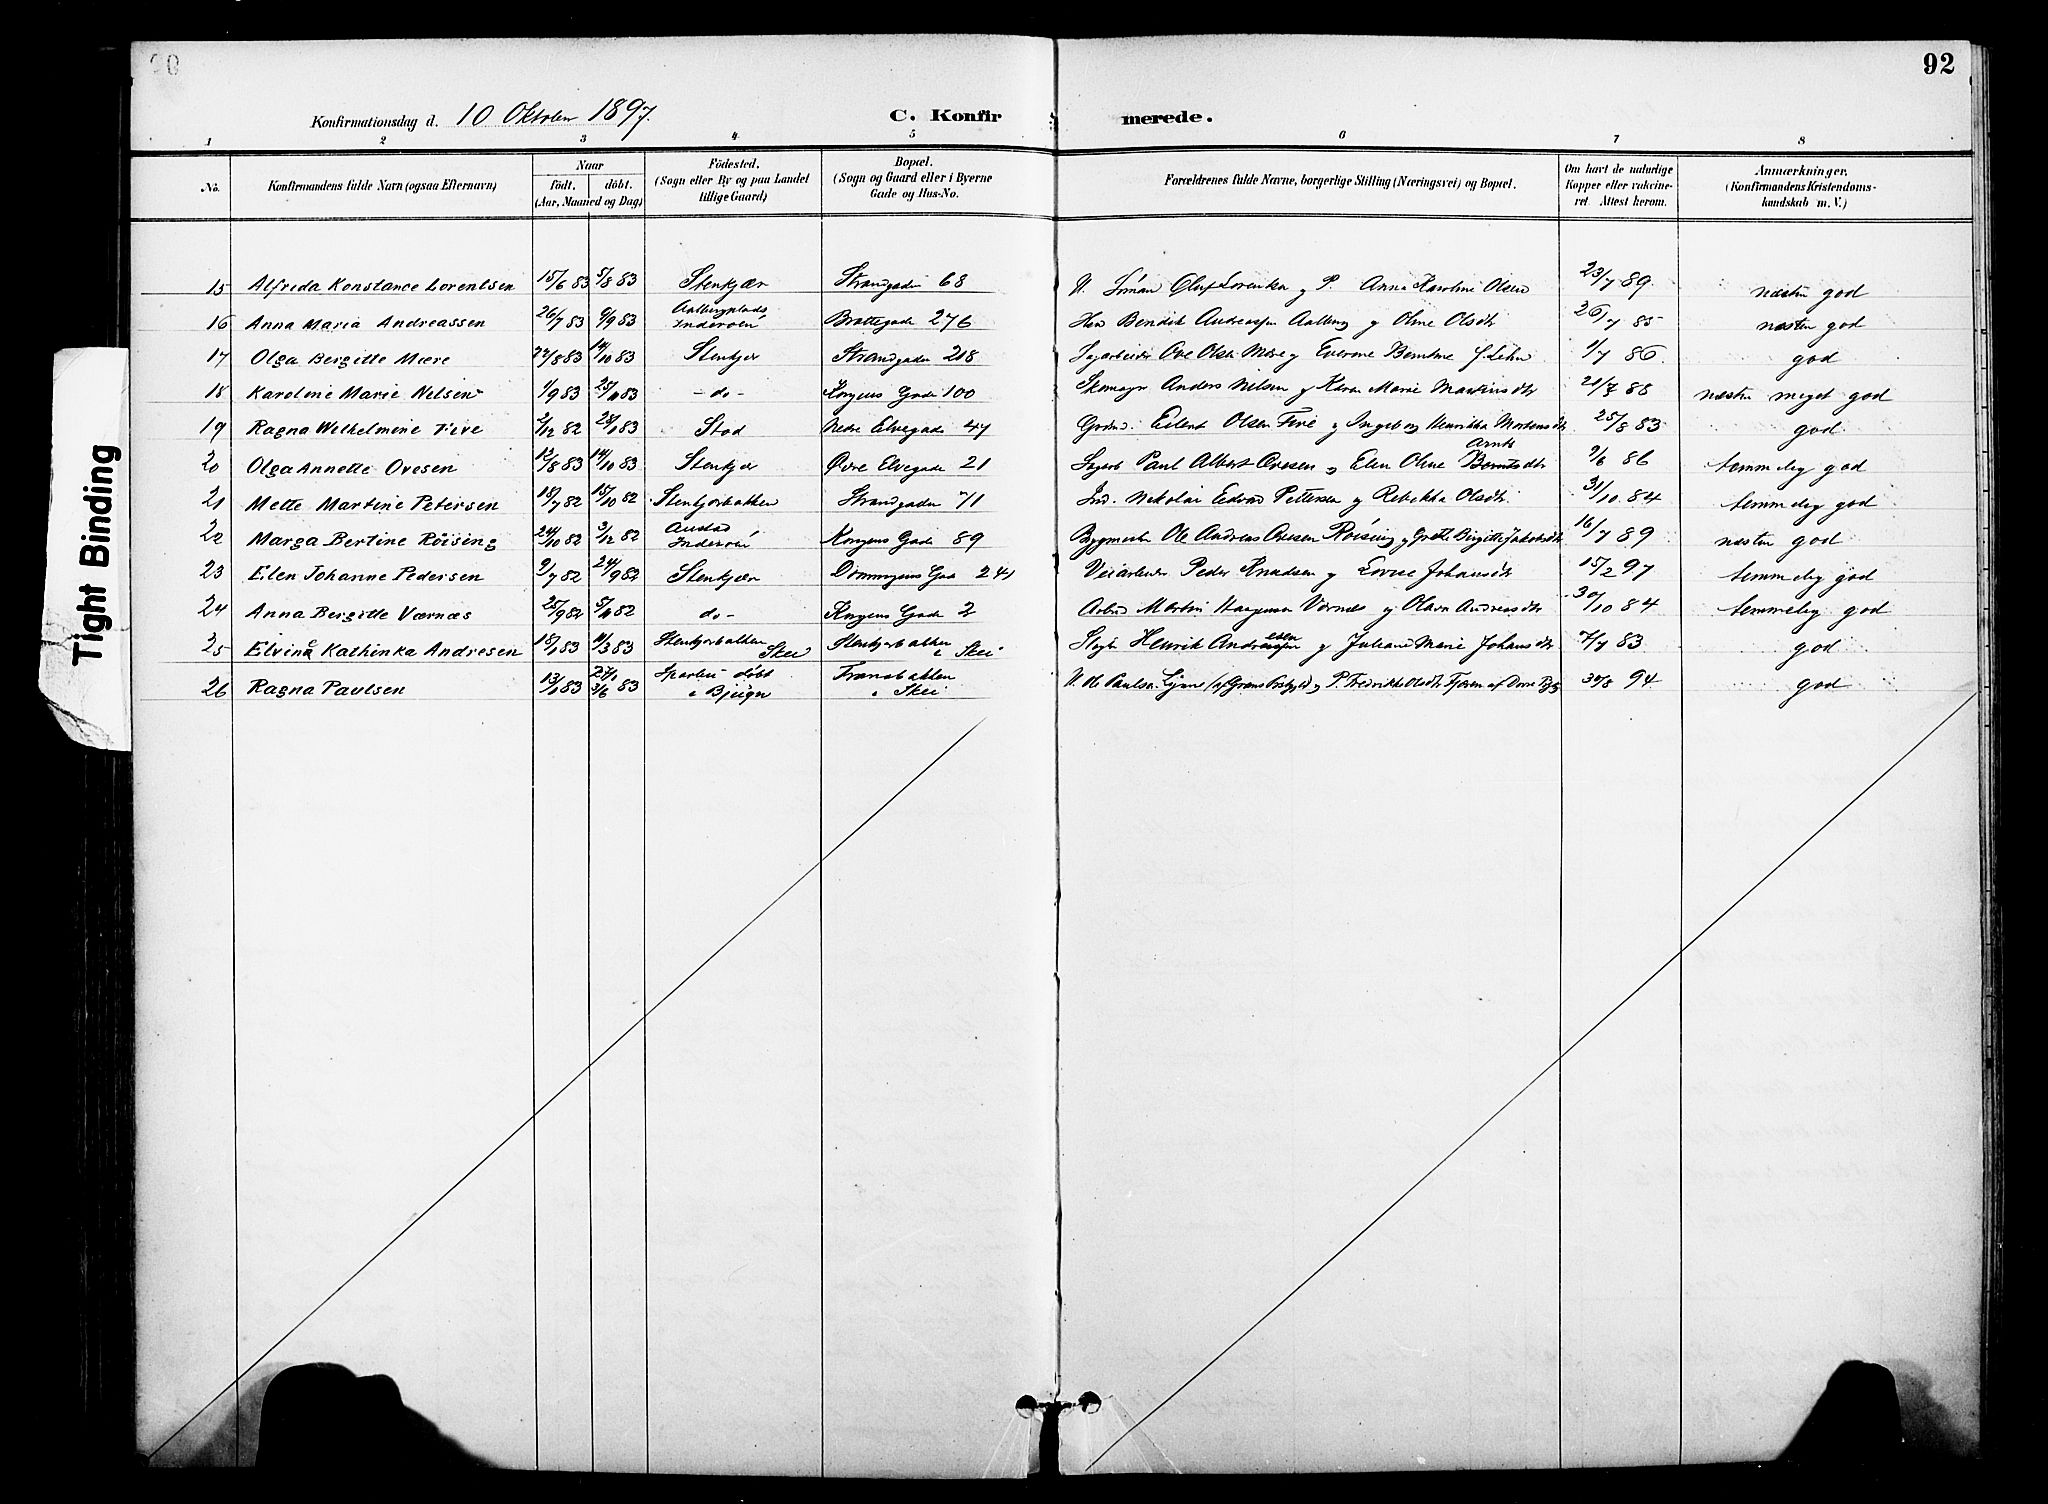 92
Konfirmationsdag d. 10 Oktober 1897.
C. Konfirmerede.
1 2 3 4 5 6 7 8
No. Konfirmandens fulde Navn (ogsaa Efternavn) Naar födt. döbt. (Aar, Maaned og Dag) Födested. (Sogn eller By og paa Landet tillige Gaard) Bopæl. (Sogn og Gaard eller i Byerne Gade og Hus-No. Forældrenes fulde Navne, borgerlige Stilling (Næringsvei) og Bopæl. Om havt de naturlige Kopper eller vakcineret. Attest herom. Anmærkninger. (Konfirmandens Kristendomskundskab m. V.)
15 Alfrida Konstance Lorentsen 15/6 83 5/8 83 Stenkjær Strandgaden 68 U. Sömand Oluf Lorentsen og P. Anna Karoline Olsen 23/7 89 næsten god
16 Anna Maria Andreassen 26/7 83 9/9 83 Aalbergplads Inderöen Brattegade 276 Bendik Andreassen Aalberg og Oline Olsdtr 26/7 85 næsten god
17 Olga Bergitte Mære 22/8 83 14/10 83 Stenkjer Strandgaden 218 Ove Olsen Mære og 1/7 86 god
18 Karoline Marie Nelsen 1/9 83 25/11 83 - do - Kongens Gade 100 Skomager Anders Nilsen og Karen Marie Martinsdtr næsten meget god
19 Ragna Wilhelmine Five 2/12 82 28/1 83 Stod Nedre Elvegade 47 Eilert Olsen Five og Ingeborg Henrikka Mortensdtr 25/8 83 god
20 Olga Annette Ovesen 12/8 83 14/10 83 Stenkjer Övre Elvegade 21 Paul Albert Ovesen og Elen Oline Berntsdtr Arnts 9/6 86 temmelig god
21 Mette Martine Petersen 18/7 82 15/10 82 Stenkjerbakken Strandgaden 71 Ind. Nikolai Edvard Pettersen og Rebekka Olsdtr 31/10 84 temmelig god
22 Marga Bertine Röising 24/10 82 3/12 82 Austad Inderöen Kongens Gade 89 Bygmester Ole Andreas Ovesen Röising og Grethe Birgitte Jakobsdtr 16/7 89 næsten god
23 Elen Johanne Pedersen 9/7 82 24/9 82 Stenkjær Dronningens Gad 241 Veiarbeider Peder Knudsen og Lovise Johansdtr 15/2 97 temmelig god
24 Anna Bergitte Værnæs 25/9 82 5/11 82 do - Kongens Gade 2 Arbeid Martin Haagensen Værnes og Olava Andreasdtr 30/10 84 temmelig god
25 Elvine Kathinka Andresen 18/1 83 11/3 83 Stenkjerbakken Skei Stenkjerbakken i Skei Henrik Andreassen esen og Juliane Marie Johansdtr 7/7 83 god
26 Ragna Paulsen 13/1 83 27/1 3/6 83 Sparbu - döbt i Bjugn Franabakken i Skei U. Ole Paulsen Lynne (af Grans Prstgjeld) og P. Fredrikke Olsdtr 30/8 94 god
Tight Binding